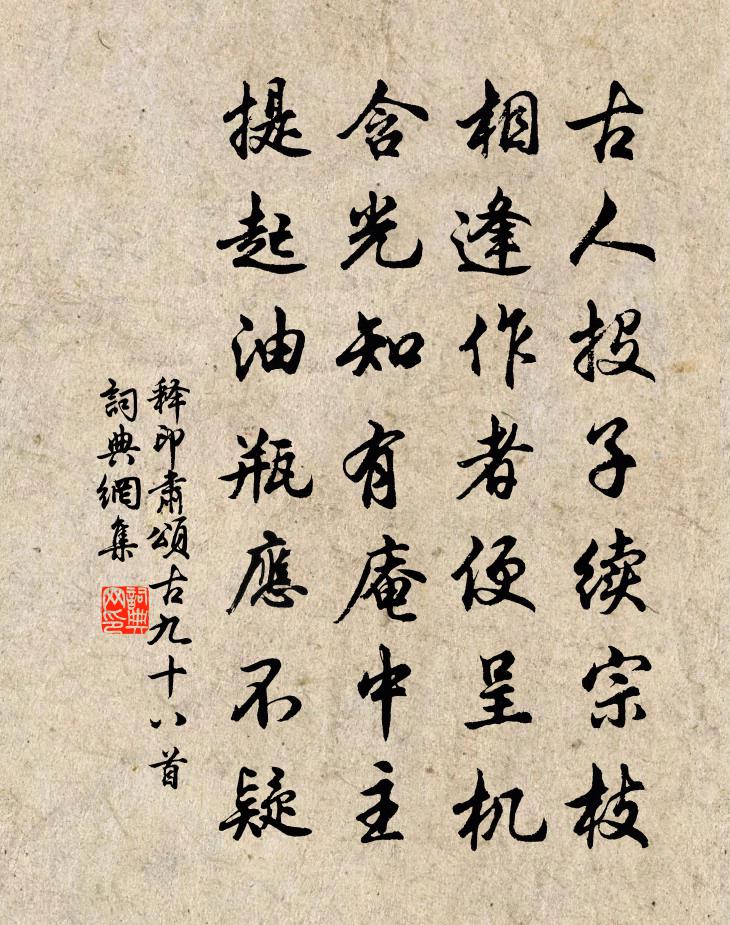 古人投子续宗枝
相逢作者便呈机
含光知有庵中主
提起油瓶應不疑
释印肅頌古九十八首
詞典網集
詞典網印